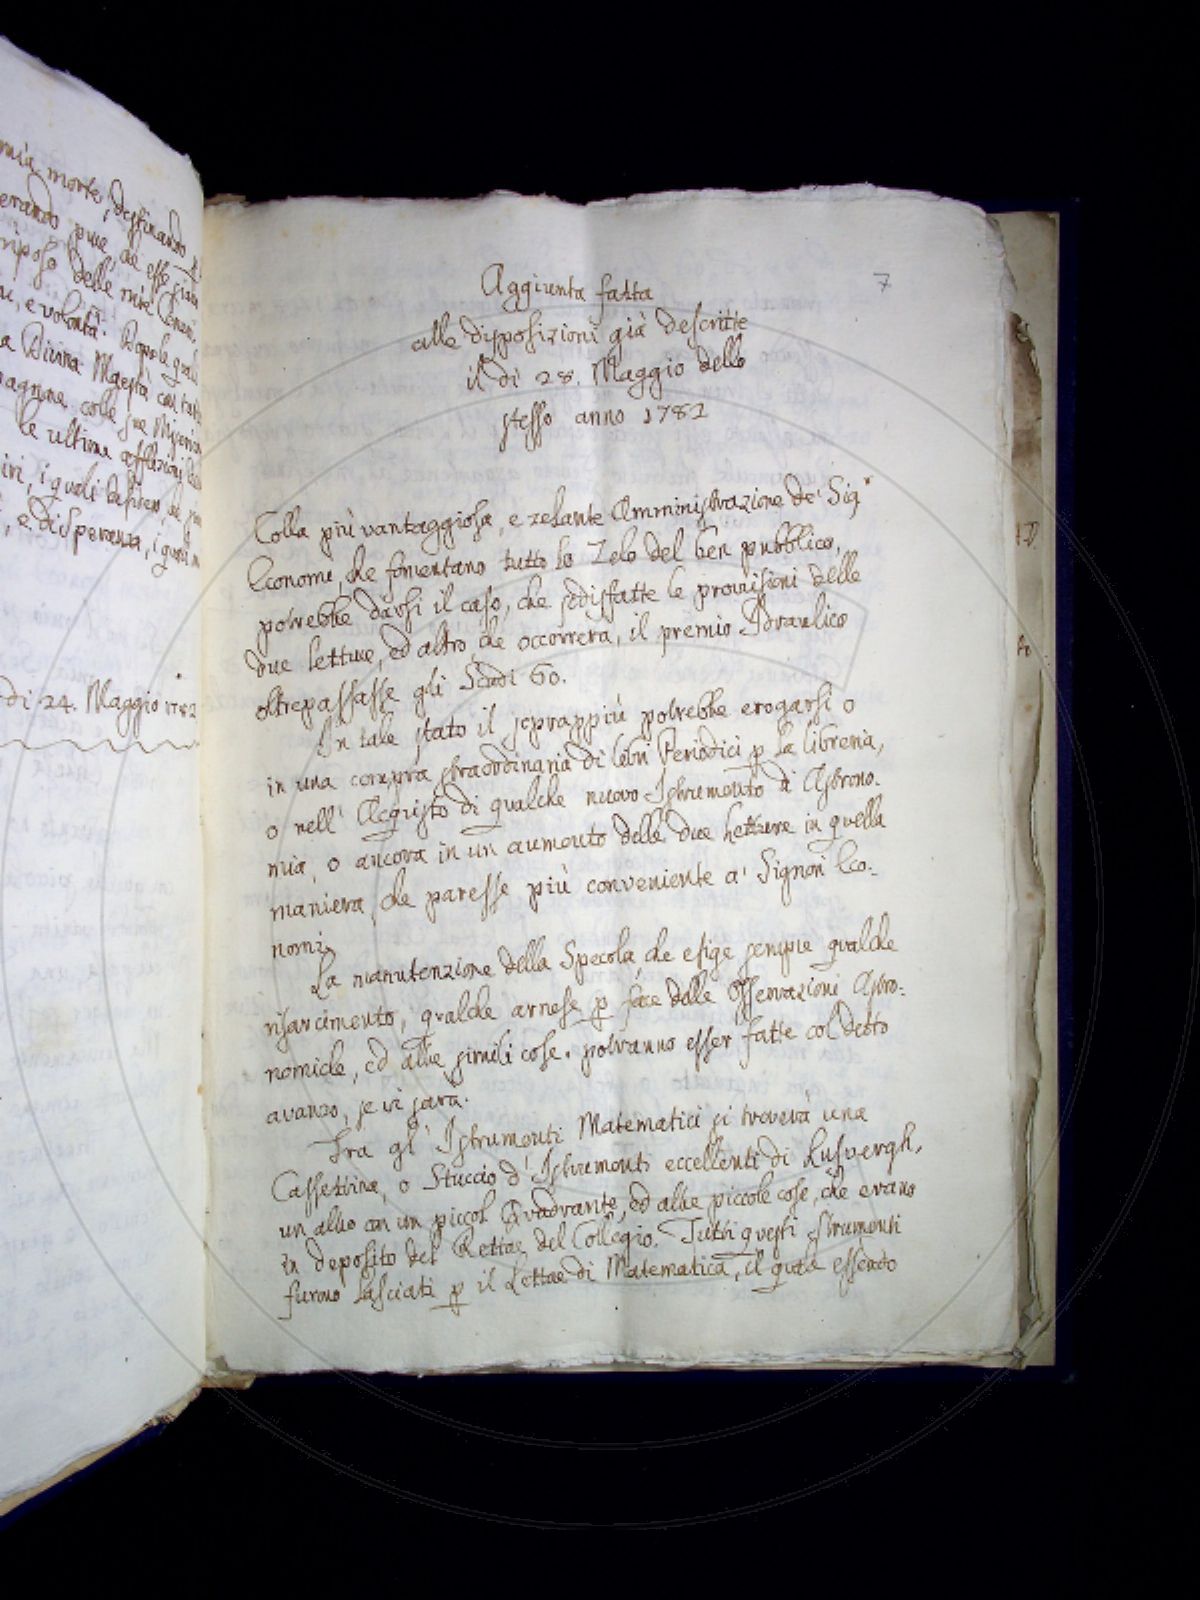 mia morte, destinando
erando pure, de esse
riposo delle mie
e volontà. Dopo le quali
a Divina Maestà con tutta
le ultime afflizioni
i quali
, e disperanza, i quali
di 24. Maggio 1782
7
Aggiunta fatta
alle disposizioni già descritte
il dì 28. Maggio dello
stesso anno 1782
Colla più vantaggiosa, e zelante Amministrazione de' Sig.ri
Economi, che fomentano tutto lo Zelo del ben pubblico,
potrebbe darsi il caso, che sodisfatte le provisioni delle
due letture, ed altro, che occorrerà, il premio Idraulico
oltrepassasse gli Scudi 60.
In tale stato il soprappiù potrebbe erogarsi o
in una compra straordinaria di libri Periodici p la libreria,
o nell' Acquisto di qualche nuovo Istrumento di Astrono-
mia, o ancora in un aumento delle due letture in quella
maniera, che paresse più conveniente a' Signori Eco-
nomi.
La manutenzione della Specola che esige sempre qualche
risarcimento, qualche arnese p fare delle Osservazioni Astro-
nomiche, ed altre simili cose, potranno esser fatte col detto
avanzo, se vi sarà.
Tra gl' Istrumenti Matematici si troverà una
Cassettina, o Stuccio d' Istrumenti eccellenti di Lusvergh,
un altro con un piccol Quadrante, ed altre piccole cose, che erano
in deposito del Rettore del Collegio. Tutti questi strumenti
furono lasciati p il Lettore di Matematica, il quale essendo